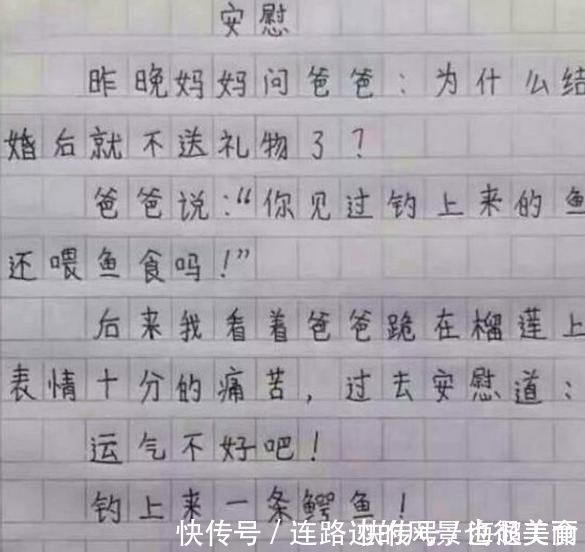 安慰
昨晚妈妈问爸爸:为什么结
婚后就不送礼物了?
爸爸说:“你见过钓上来的鱼
还喂鱼食吗!”
后来我看着爸爸跪在榴莲上
表情十分的痛苦,过去安慰道:
运气不好吧!
钓上来一条鳄鱼!
快传号/连路边的风景也很美